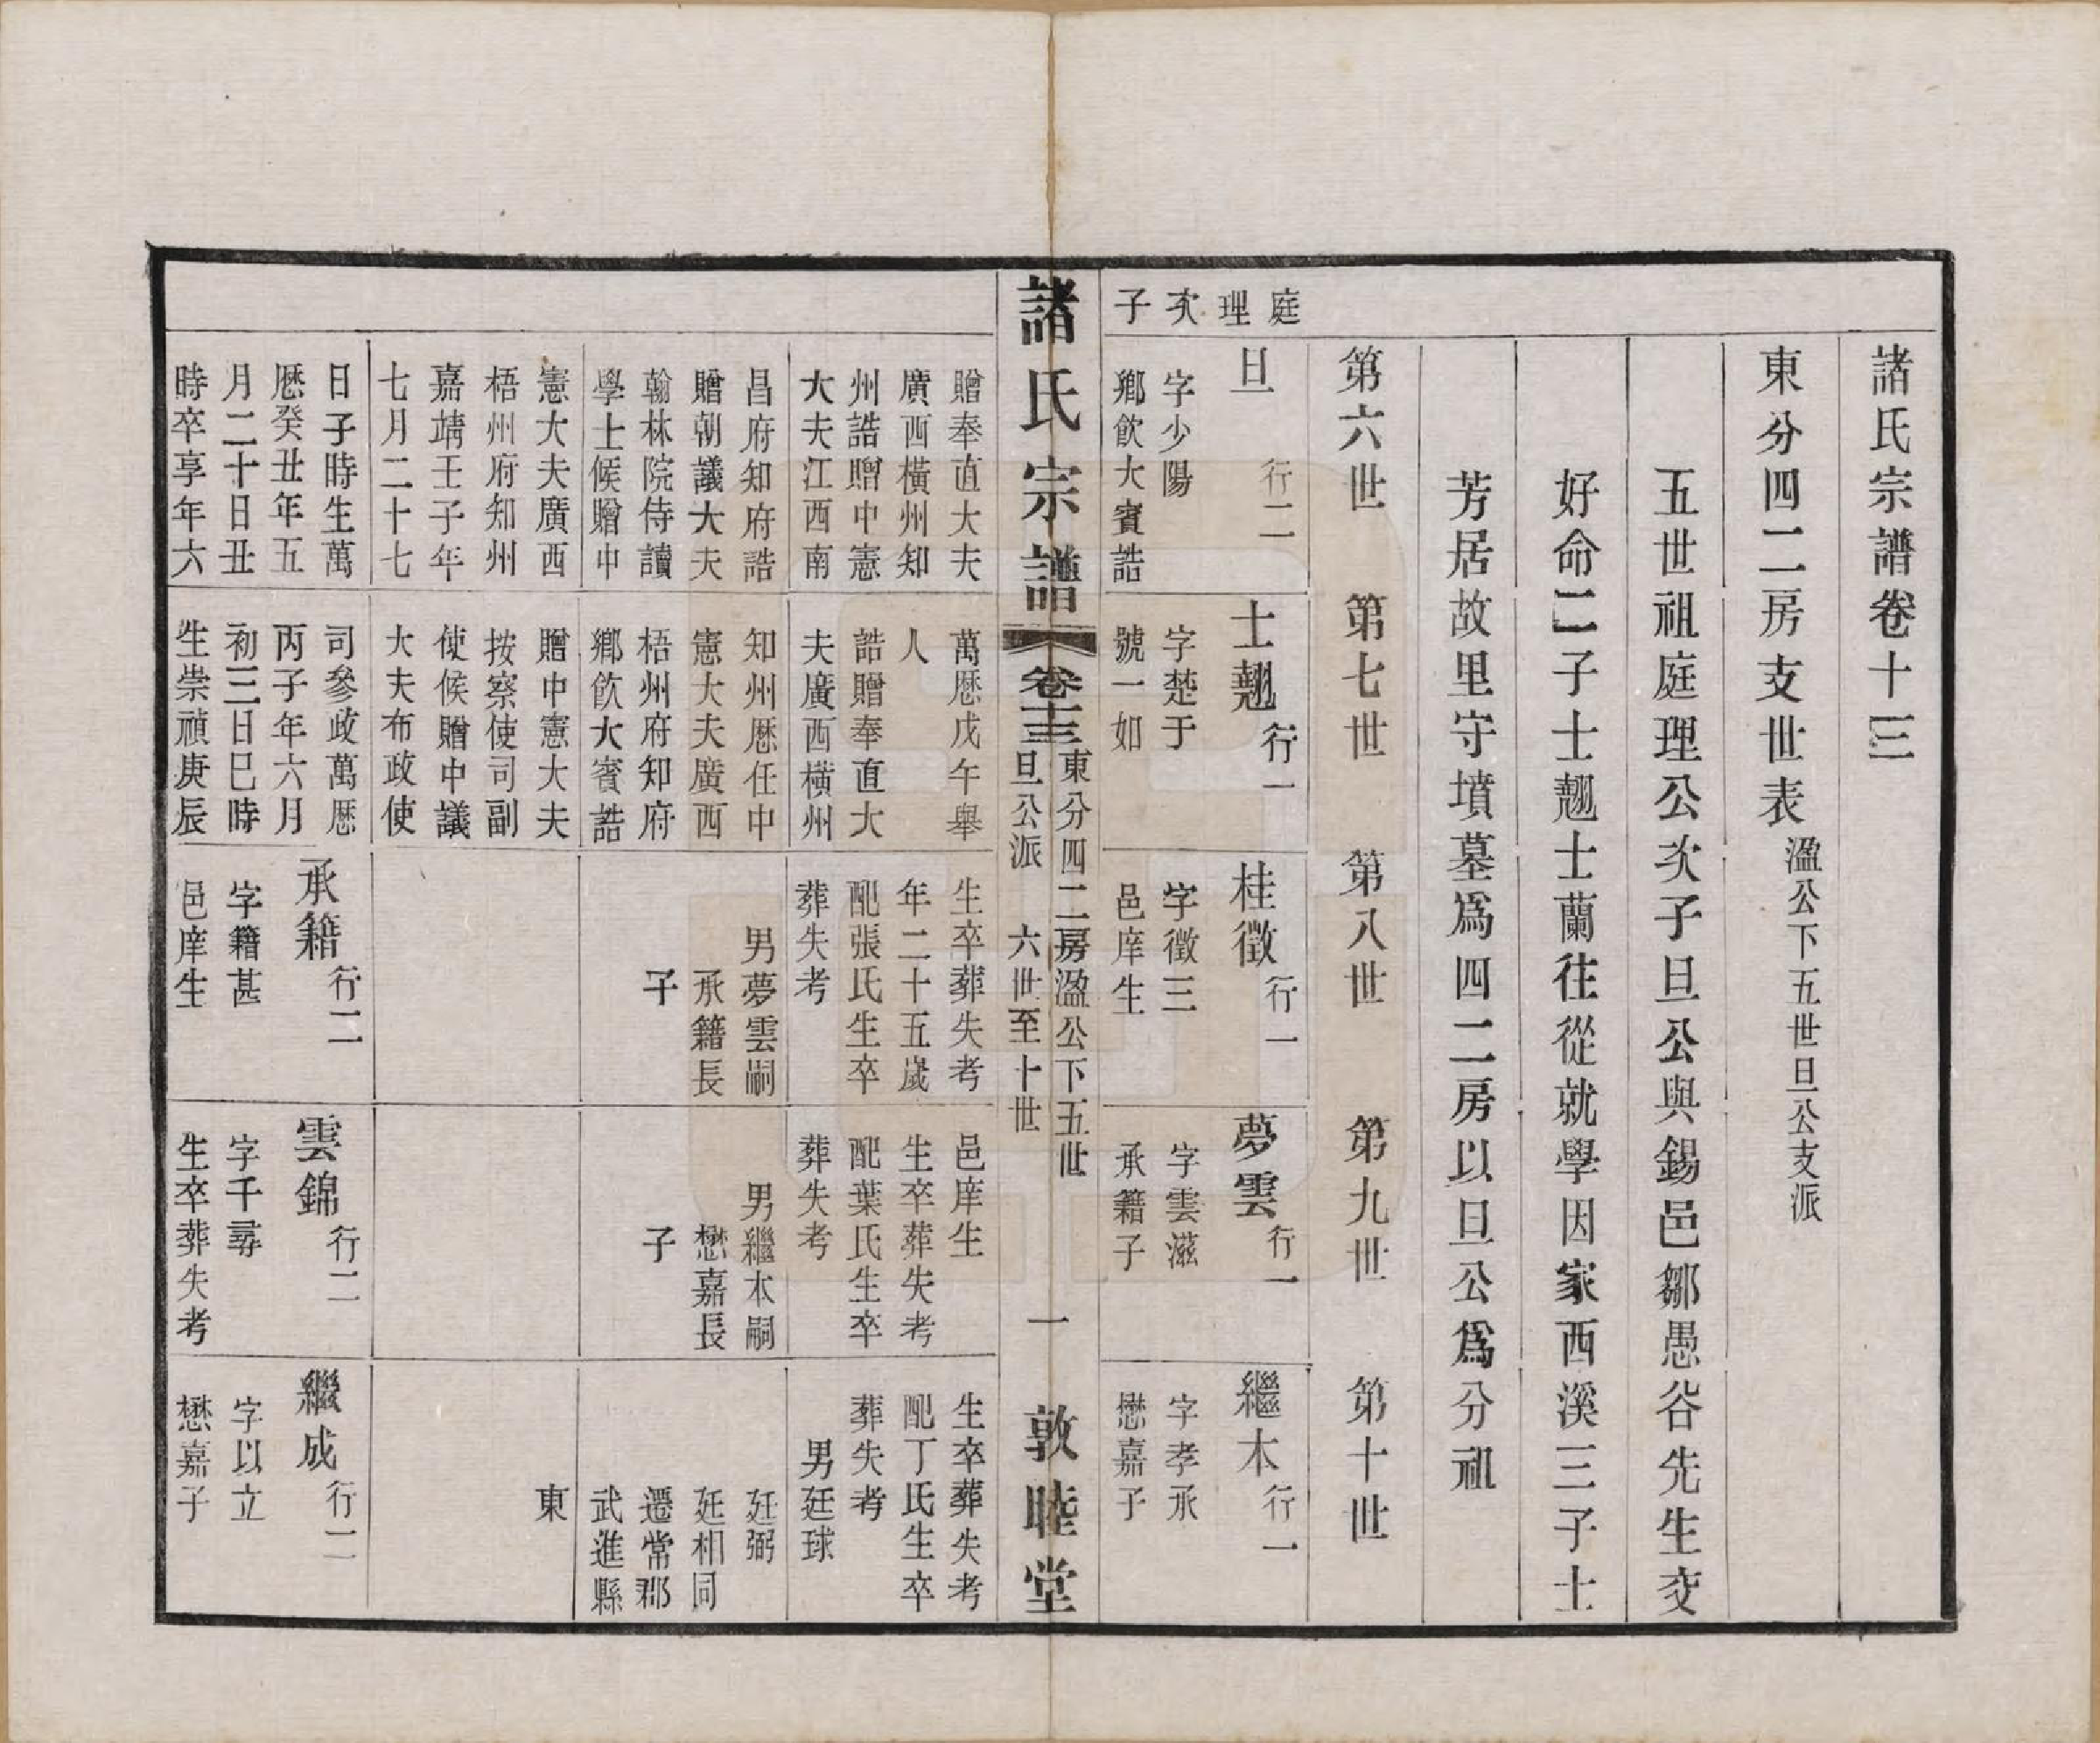 諸氏宗譜卷十三
東分四二房支世表
溋公下五世旦公支派
五世祖庭理公次子旦公與錫邑鄒愚谷先生交
好命二子士翹士蘭往從就學因家西溪三子士
芳居故里守墳墓爲四二房以旦公爲分祖
第六世
第七世
第八世
第九世
第十世
庭理次子
旦
行二
字少陽
鄉飲大賓誥
士翹
行一
字楚于
號一如
桂徵
行一
字徵三
邑庠生
夢雲
行一
字雲滋
承籍子
繼本
行一
字孝承
懋嘉子
諸氏宗譜
卷十三
東分四二房溋公下五世
旦公派
六世至十世
一
敦睦堂
贈奉直大夫
廣西橫州知
州誥贈中憲
大夫江西南
昌府知府誥
贈朝議大夫
翰林院侍讀
學士候贈中
憲大夫廣西
梧州府知州
嘉靖壬子年
七月二十七
日子時生萬
厯癸丑年五
月二十日丑
時卒享年六
萬厯戊午舉
人
誥贈奉直大
夫廣西橫州
知州厯任中
憲大夫廣西
梧州府知府
鄉飲大賓誥
贈中憲大夫
按察使司副
使候贈中議
大夫布政使
司參政萬厯
丙子年六月
初三日巳時
生崇禎庚辰
生卒葬失考
年二十五歲
配張氏生卒
葬失考
男夢雲嗣
承籍長
子
承籍
行二
字籍甚
邑庠生
邑庠生
生卒葬失考
配葉氏生卒
葬失考
男繼本嗣
懋嘉長
子
雲錦
行二
字千尋
生卒葬失考
生卒葬失考
配丁氏生卒
葬失考
男廷球
廷弼
廷相同
遷常郡
武進縣
東
繼成
行二
字以立
懋嘉子